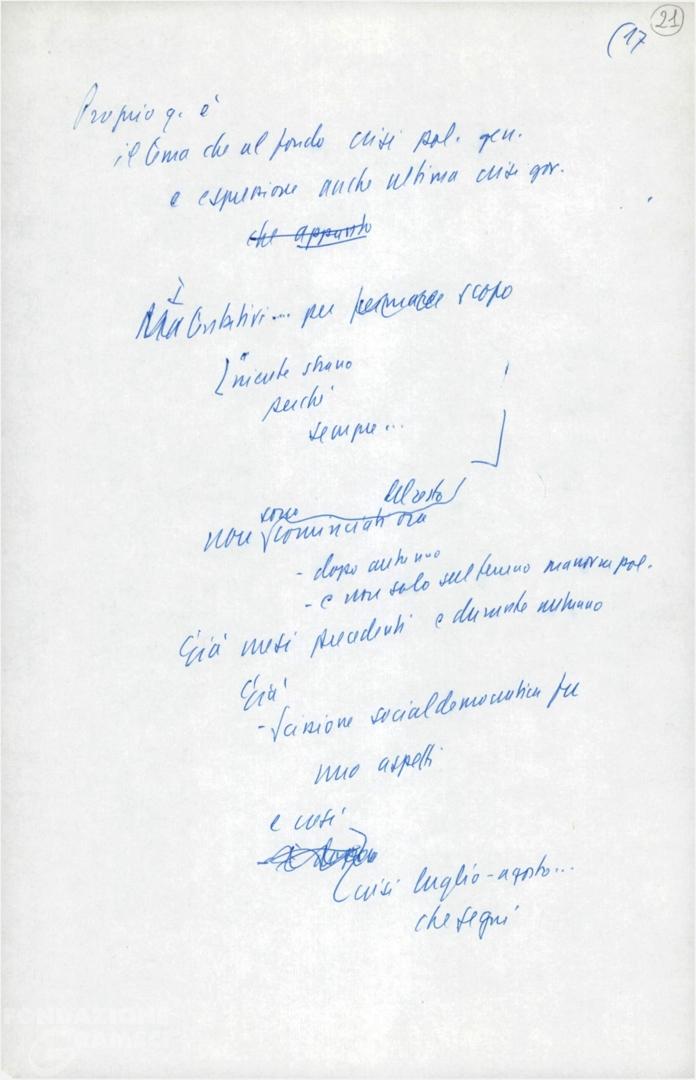 21
(17
Proprio q. è
il tema che al fondo crisi pol. gen.
e espressione anche ultima crisi gov.
che appunto
Ma tentativi... per scopo
["niente strano
perché
sempre...
sono del resto
non cominciati ora
- dopo autunno
- e non solo sul terreno manovre pol.
Già mesi precedenti e durante autunno
Già
- scissione socialdemocratica fu
suo aspetti
e così
crisi luglio-agosto...
che seguì
FONDAZIONE
GRAMSCI